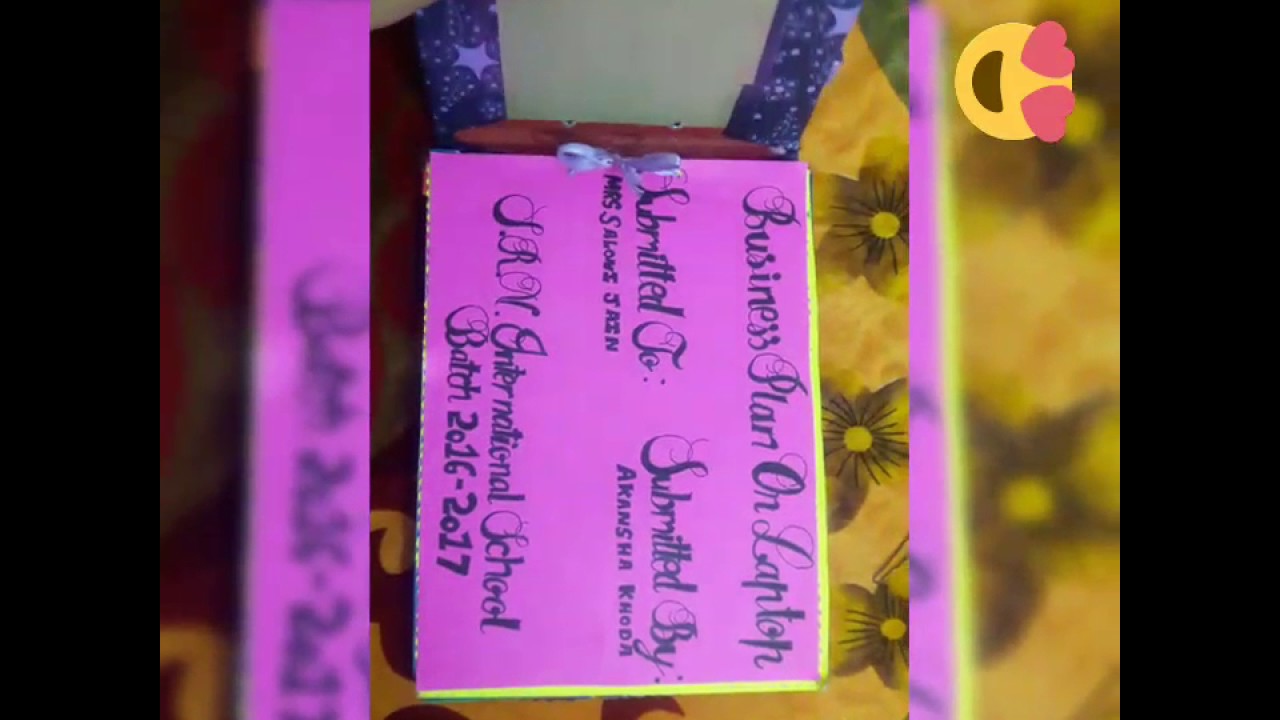 Business Plan On Laptop
Submitted To: Submitted By:
MRS SALONI JAIN AKANSHA KHODA
S.R.N. International School
Batch 2016-2017
Batch 2016-2017